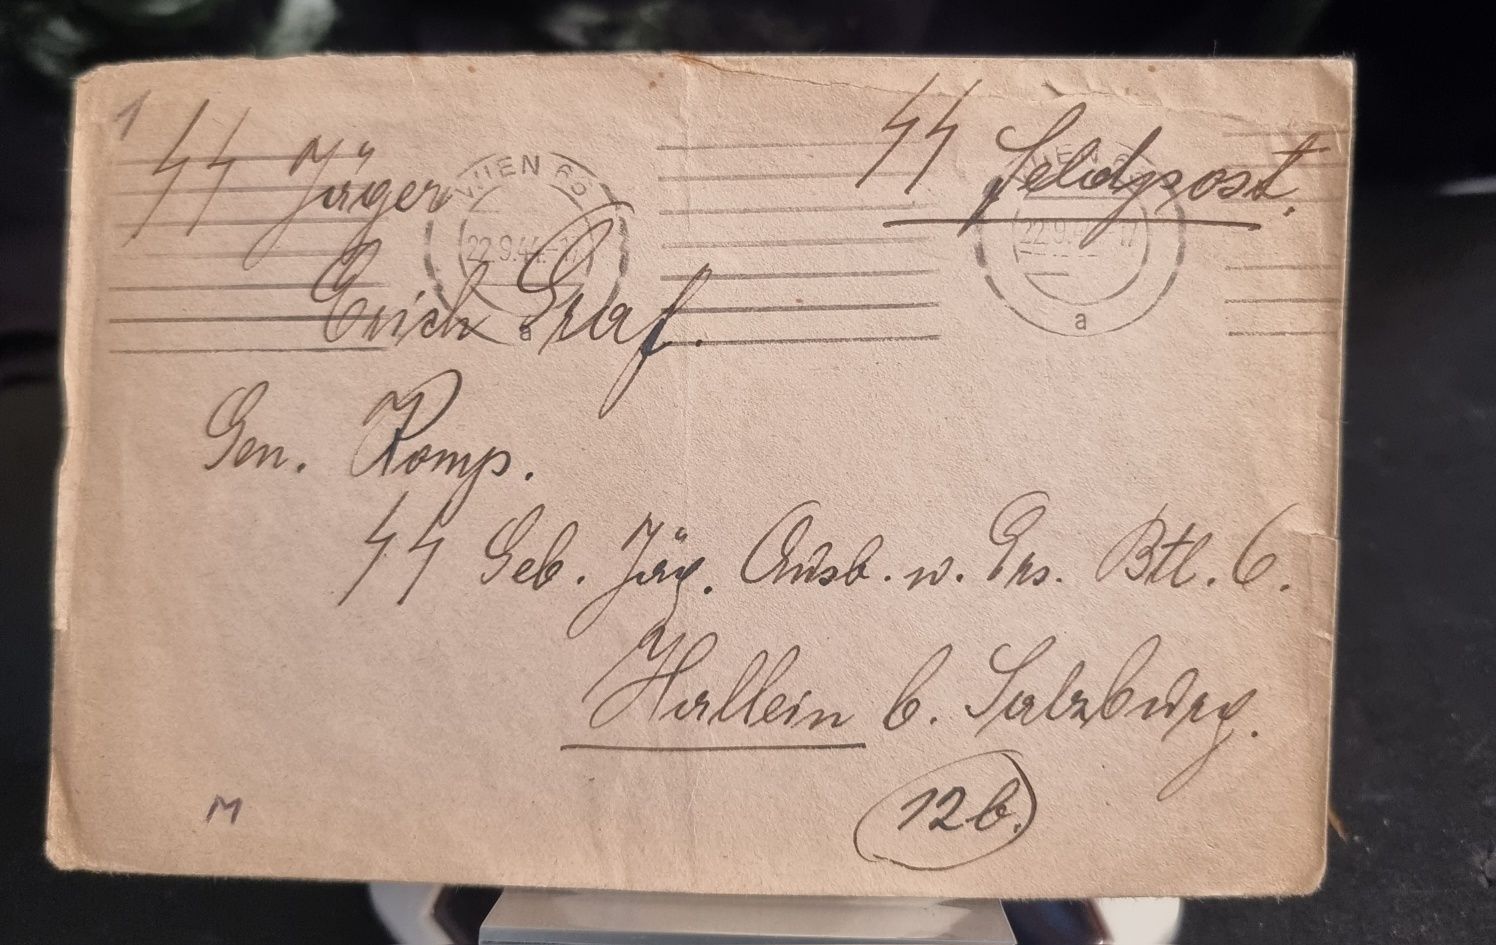 1
SS Feldpost.
SS Jäger
WIEN 65
22.9.44-17
a
WIEN 65
22.9.44-17
a
Erich Graf.
Gen. Komp.
SS Geb. Jäg. Ausb. u. Ers. Btl. 6.
Hallein b. Salzburg.
12b.
M